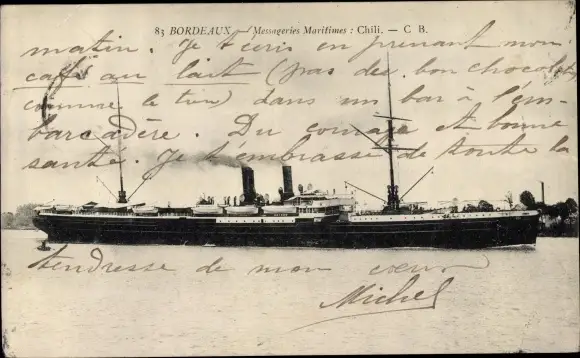 83 BORDEAUX — Messageries Maritimes : Chili. — C B.
matin. Je t'écris en prenant mon
café au lait (pas de bon chocolat
comme le tien) dans un bar à l'em-
barcadère. Du courage et bonne
santé. Je t'embrasse de toute la
tendresse de mon cœur
Michel